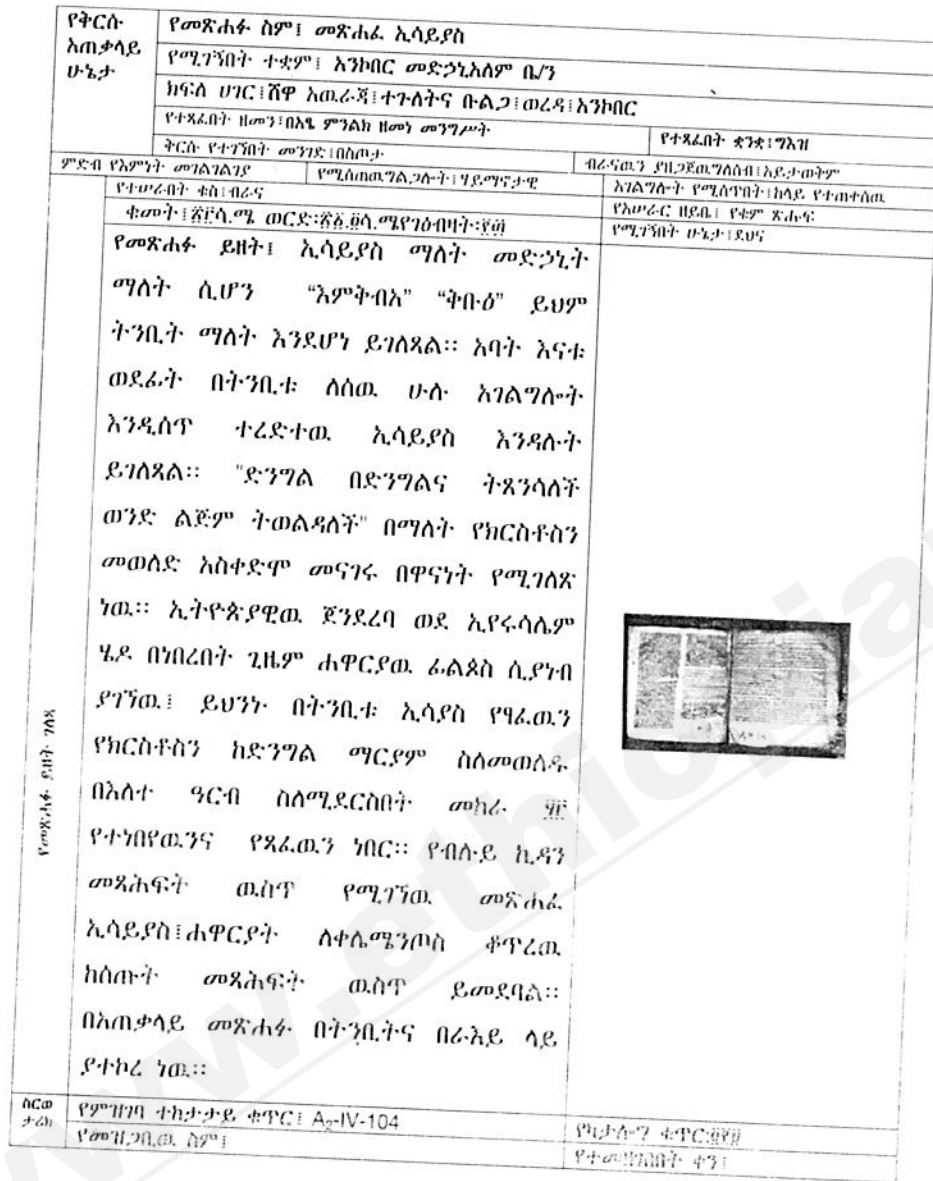 የቅርሱ
አጠቃላይ
ሁኔታ
የመጽሐፉ ስም፤ መጽሐፈ ኢሳይያስ
የሚገኝበት ተቋም፤ አንኮበር መድኃኒአለም ቤ/ን
ክፍለ ሀገር፤ሸዋ አዉራጃ፤ተጉለትና ቡልጋ፤ወረዳ፤አንኮበር
የተጻፈበት ዘመን፤በአፄ ምንልክ ዘመነ መንግሥት
የተጻፈበት ቋንቋ፤ግእዝ
ቅርሱ የተገኘበት መንገድ፤በስጦታ
ብራናዉን ያዘጋጀዉግለሰብ፤አይታወቅም
ምድብ የእምነት መገልገልገያ
የሚሰጠዉግልጋሎት፤ሃይማኖታዊ
አገልግሎት የሚሰጥበት፤ከላይ የተጠቀሰዉ
የተሠራበት ቁስ፤ብራና
የአሠራር ዘይቤ፤ የቁም ጽሑፍ
ቁመት፤ ሳ.ሜ ወርድ፡ ሳ.ሜየገፅብዛት፡
የሚገኝበት ሁኔታ፤ደህና
የመጽሐፉ ይዘት ገለጻ
የመጽሐፉ ይዘት፤ ኢሳይያስ ማለት መድኃኒት
ማለት ሲሆን “እምቅብአ” “ቅቡዕ” ይህም
ትንቢት ማለት እንደሆነ ይገለጻል፡፡ አባት እናቱ
ወደፊት በትንቢቱ ለሰዉ ሁሉ አገልግሎት
እንዲሰጥ ተረድተዉ ኢሳይያስ እንዳሉት
ይገለጻል፡፡ "ድንግል በድንግልና ትጸንሳለች
ወንድ ልጅም ትወልዳለች" በማለት የክርስቶስን
መወለድ አስቀድሞ መናገሩ በዋናነት የሚገለጽ
ነዉ፡፡ ኢትዮጵያዊዉ ጀንደረባ ወደ ኢየሩሳሌም
ሄዶ በነበረበት ጊዜም ሐዋርያዉ ፊልጶስ ሲያነብ
ያገኘዉ፤ ይህንኑ በትንቢቱ ኢሳያስ የፃፈዉን
የክርስቶስን ከድንግል ማርያም ስለመወለዱ
በእለተ ዓርብ ስለሚደርስበት መከራ
የተነበየዉንና የጻፈዉን ነበር፡፡ የብሉይ ኪዳን
መጻሕፍት ዉስጥ የሚገኘዉ መጽሐፈ
ኢሳይያስ፤ሐዋርያት ለቀሌሜንጦስ ቆጥረዉ
ከሰጡት መጻሕፍት ዉስጥ ይመደባል፡፡
በአጠቃላይ መጽሐፉ በትንቢትና በራእይ ላይ
ያተኮረ ነዉ፡፡
ስርወ
ታሪክ
የምዝገባ ተከታታይ ቁጥር፤ A₂-IV-104
የካታሎግ ቁጥር፡
የመዝጋቢዉ ስም፤
የተመዘገበበት ቀን፤